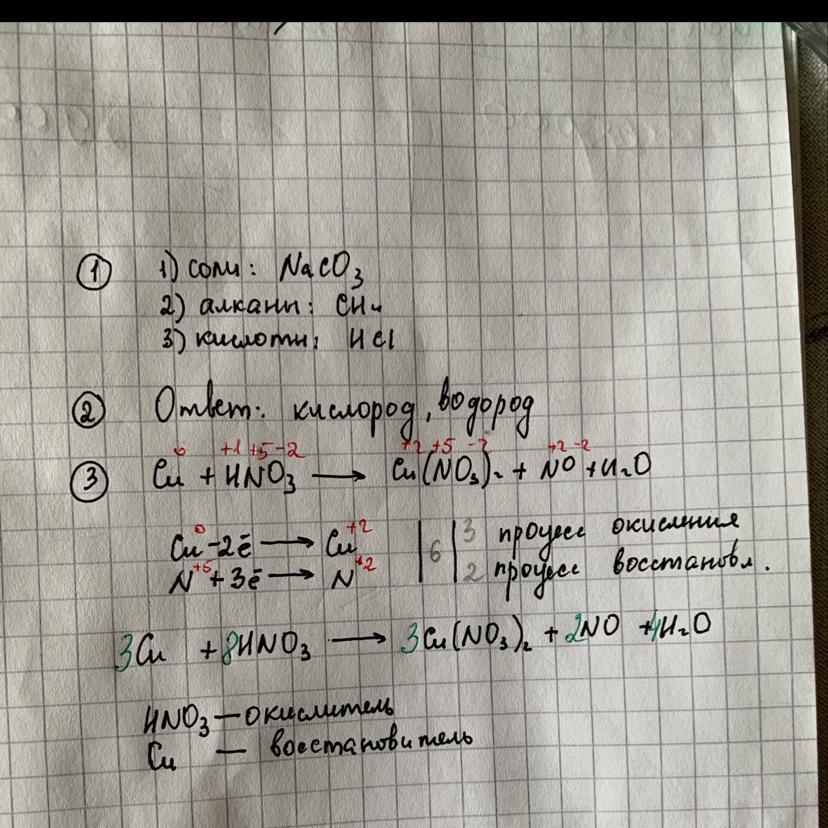 ① 1) соли: NaCO₃
2) алкани: CH₄
3) кислоти: HCl
② Ответ: кислород, водород
0 +1 +5 -2 +2 +5 -2 +2 -2
③ Cu + HNO₃ → Cu(NO₃)₂ + NO + H₂O
Cu⁰ - 2ē → Cu⁺² | 6 | 3 процесс окисления
N⁺⁵ + 3ē → N⁺² 2 процесс восстановл.
3Cu + 8HNO₃ → 3Cu(NO₃)₂ + 2NO + 4H₂O
HNO₃ — окислитель
Cu — восстановитель